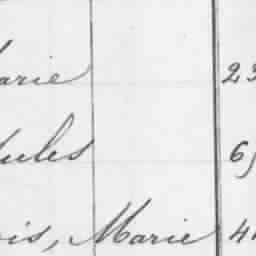 arie 23
Jules 65
ois, Marie 44